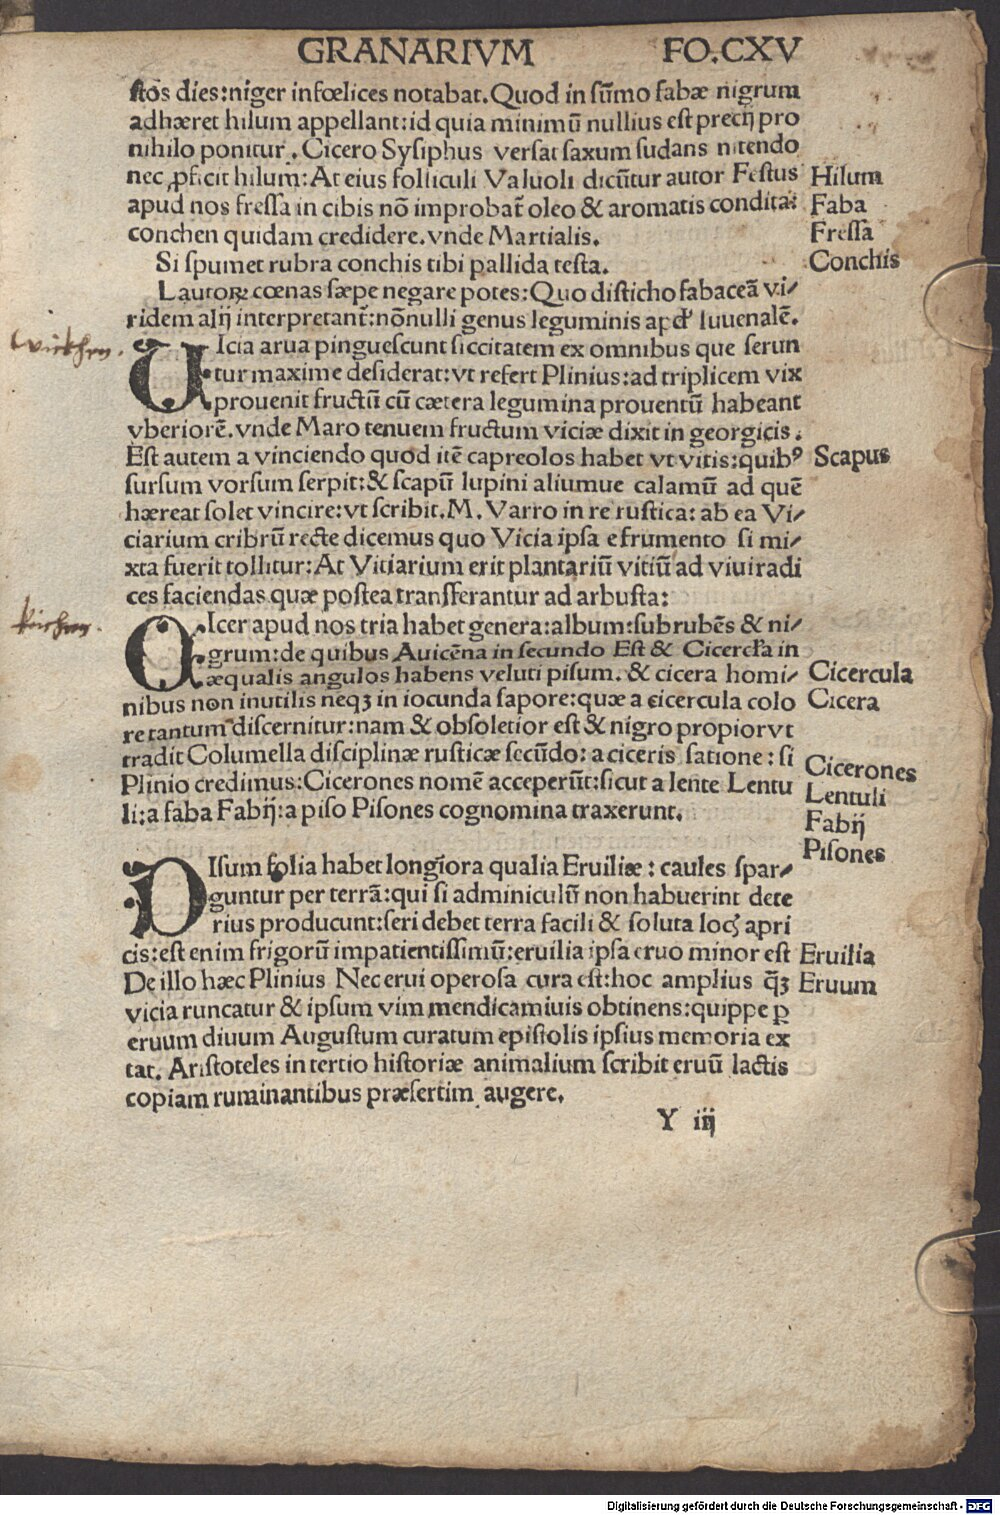 GRANARIVM FO.CXV
stos dies:niger infœlices notabat.Quod in sūmo fabæ nigrum
adhæret hilum appellant:id quia minimū nullius est precij pro
nihilo ponitur.Cicero Sysiphus versat saxum sudans nitendo
nec ꝓficit hilum:At eius folliculi Valuoli dicūtur autor Festus
Hilum
apud nos fressa in cibis nō improbat̄ oleo & aromatis condita:
Faba
conchen quidam credidere.vnde Martialis.
Fressa
Si spumet rubra conchis tibi pallida testa.
Conchis
Lautoꝝ cœnas sæpe negare potes:Quo disticho fabaceā vi/
ridem alij interpretant̄:nōnulli genus leguminis apd' Iuuenalē.
wicken.
VIcia arua pinguescunt siccitatem ex omnibus que serun
tur maxime desiderat:vt refert Plinius:ad triplicem vix
prouenit fructū cū cætera legumina prouentū habeant
vberiorē.vnde Maro tenuem fructum viciæ dixit in georgicis.
Est autem a vinciendo quod itē capreolos habet vt vitis:quibꝰ
Scapus
sursum vorsum serpit:& scapū lupini aliumue calamū ad quē
hæreat solet vincire:vt scribit.M.Varro in re rustica:ab ea Vi/
ciarium cribrū recte dicemus quo Vicia ipsa e frumento si mi/
xta fuerit tollitur:At Vitiarium erit plantariū vitiū ad viuiradi
ces faciendas quæ postea transferantur ad arbusta:
CIcer apud nos tria habet genera:album:subrubēs & ni/
grum:de quibus Auicēna in secundo Est & Cicercl'a in
æqualis angulos habens veluti pisum.& cicera homi/
Cicercula
nibus non inutilis neqꝫ in iocunda sapore:quæ a cicercula colo
Cicera
re tantum discernitur:nam & obsoletior est & nigro propior vt
tradit Columella disciplinæ rusticæ secūdo:a ciceris satione:si
Plinio credimus:Cicerones nomē acceperūt:sicut a lente Lentu
Cicerones
li:a faba Fabij:a piso Pisones cognomina traxerunt.
Lentuli
Fabij
Pisones
PIsum folia habet longiora qualia Eruiliæ:caules spar/
guntur per terrā:qui si adminiculū non habuerint dete
rius producunt:seri debet terra facili & soluta locꝭ apri
cis:est enim frigorū impatientissimū:eruilia ipsa eruo minor est
Eruilia
De illo hæc Plinius Nec erui operosa cura est:hoc amplius q̄ꝫ
Eruum
vicia runcatur & ipsum vim mendicamiuis obtinens:quippe ꝑ
eruum diuum Augustum curatum epistolis ipsius memoria ex
tat.Aristoteles in tertio historiæ animalium scribit eruū lactis
copiam ruminantibus præsertim augere.
Y iij
Digitalisierung gefördert durch die Deutsche Forschungsgemeinschaft - DFG